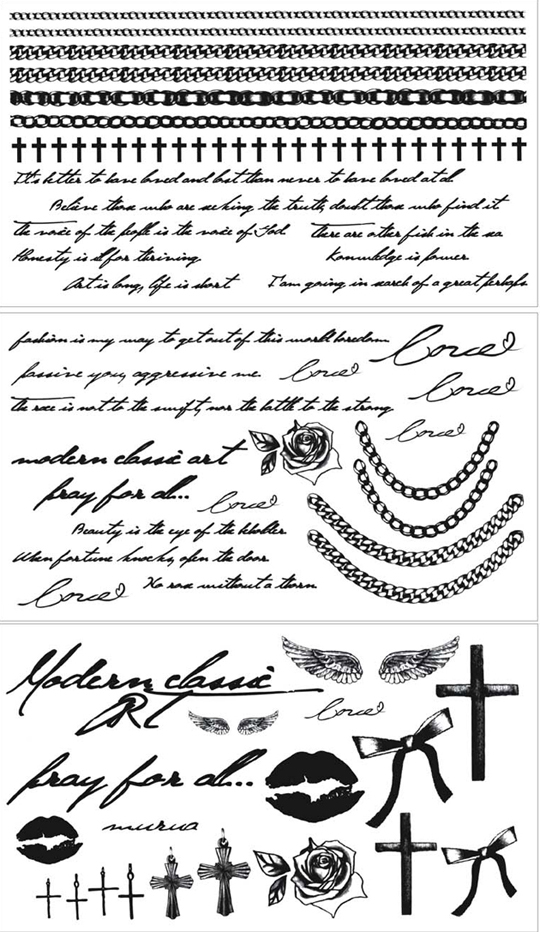 It's better to have loved and lost than never to have loved at all
Believe those who are seeking the truth, doubt those who find it
The voice of the people is the voice of God
There are other fish in the sea
Honesty is ill for thriving.
Knowledge is power
Art is long, life is short
I'am going in search of a great perhaps
fashion is my way to get out of this world boredom
Love
passive you, aggressive me.
Love
Love
the race is not to the swift, nor the battle to the strong
Love
modern classic art
pray for all...
Love
Beauty is the eye of the beholder
When fortune knocks, open the door
Love
No rose without a thorn.
Modern classic
ART
Love
pray for all...